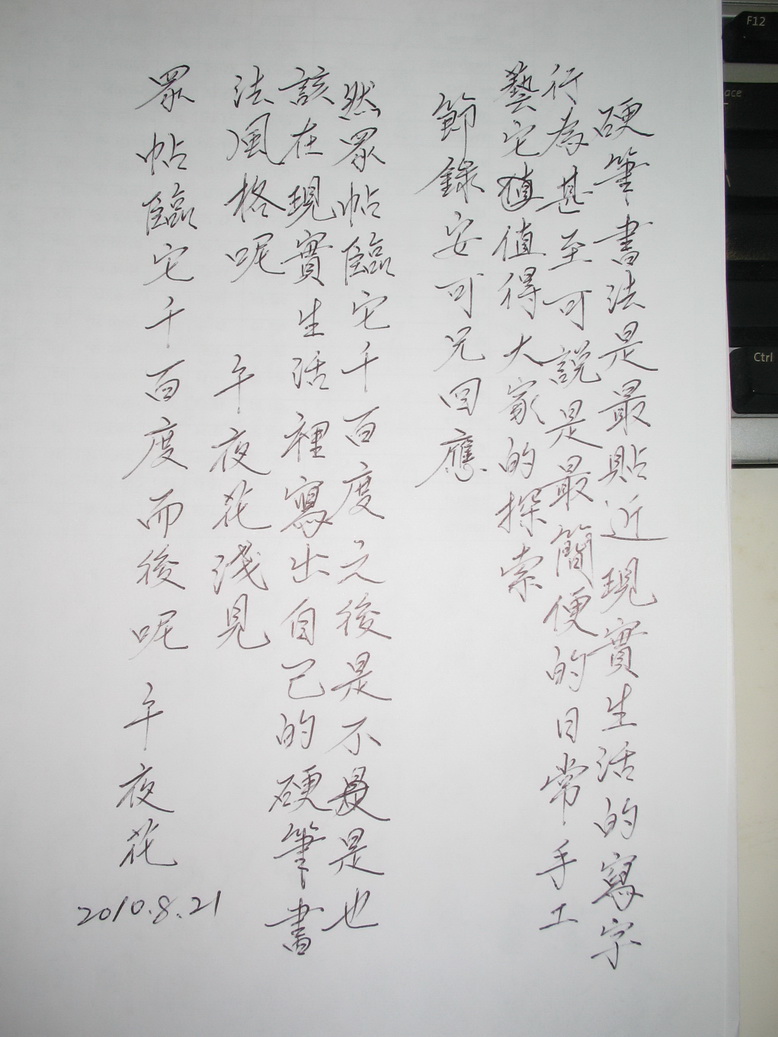 硬筆書法是最貼近現實生活的寫字
行為甚至可說是最簡便的日常手工
藝它值得大家的探索
節錄安可兄回應
然眾帖臨它千百度之後是不是也
該在現實生活裡寫出自己的硬筆書
法風格呢
午夜花淺見
眾帖臨它千百度而後呢 午夜花
2010.8.21
F12
Ctrl